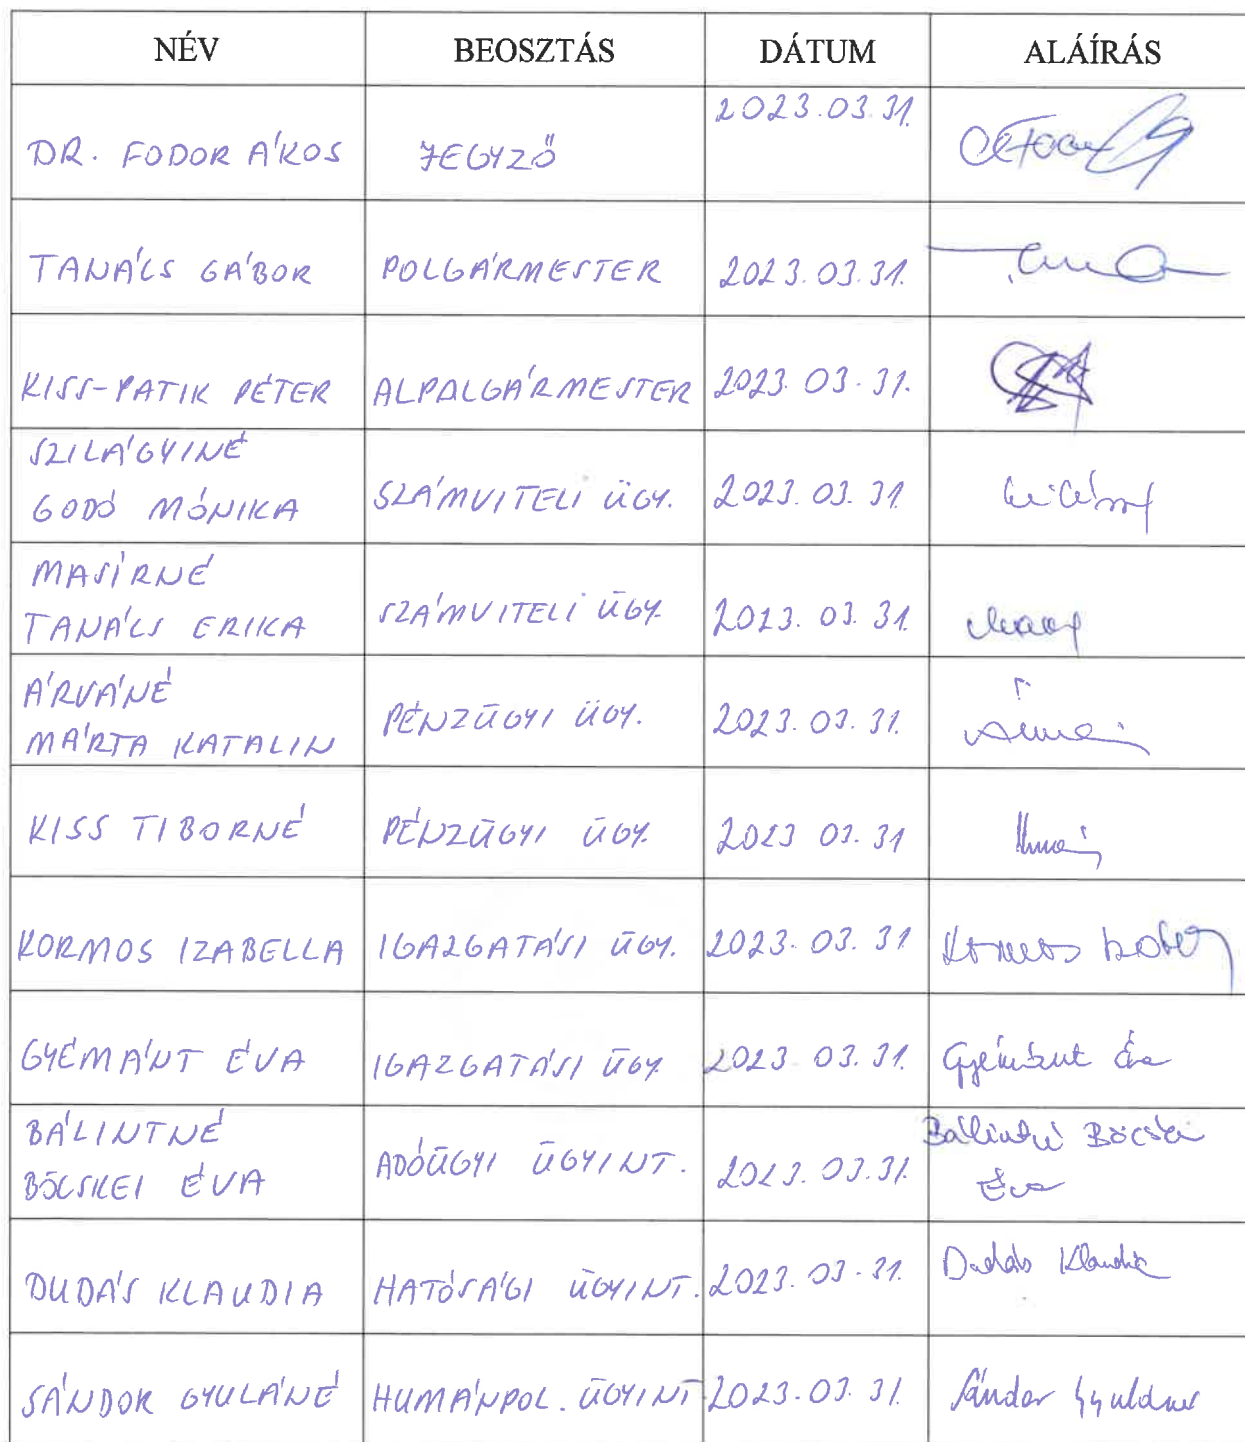 NÉV BEOSZTÁS DÁTUM ALÁÍRÁS
DR. FODOR ÁKOS JEGYZŐ 2023.03.31.
TANÁCS GÁBOR POLGÁRMESTER 2023.03.31.
KISS-PATIK PÉTER ALPALGÁRMESTER 2023.03.31.
SZILÁGYINÉ
GODÓ MÓNIKA SZÁMVITELI ÜGY. 2023.03.31
MASÍRNÉ
TANÁCS ERIKA SZÁMVITELI ÜGY. 2023.03.31.
ÁRVÁNÉ
MÁRTA KATALIN PÉNZÜGYI ÜGY. 2023.03.31.
KISS TIBORNÉ PÉNZÜGYI ÜGY. 2023 03.31
KORMOS IZABELLA IGAZGATÁSI ÜGY. 2023.03.31 Kormos
GYÉMÁNT ÉVA IGAZGATÁSI ÜGY 2023.03.31. Gyémánt Éva
BÁLINTNÉ
BÖCSKEI ÉVA ADÓÜGYI ÜGYINT. 2023.03.31. Bálintné Böcskei
Éva
DUDÁS KLAUDIA HATÓSÁGI ÜGYINT. 2023.03.31. Dudás Klaudia
SÁNDOR GYULÁNÉ HUMÁNPOL. ÜGYINT. 2023.03.31. Sándor Gyuláné